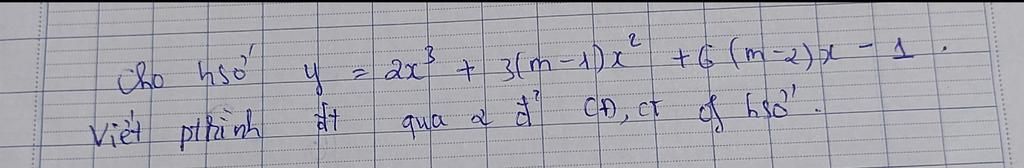 Cho hsố y = 2x³ + 3(m-1)x² + 6(m-2)x - 1.
Viết pthình đt qua 2 đ' CĐ, CT of hsố.